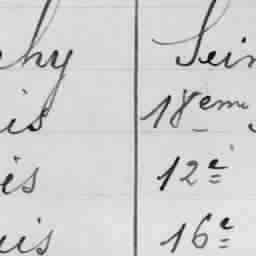 chy Sein
is 18em
is 12e
uis 16e